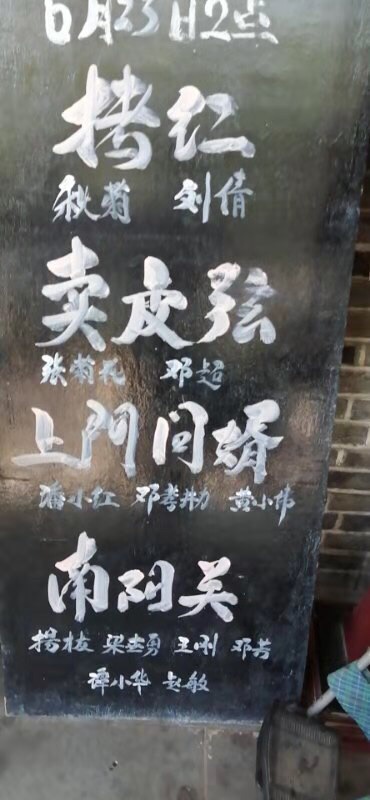 6月23日2点
拷红
秋菊 刘倩
卖皮弦
张菊花 邓超
上門问婿
潘小红 邓孝勋 黄小伟
南阳关
楊枝 梁志勇 王刚 邓芳
谭小华 赵敏